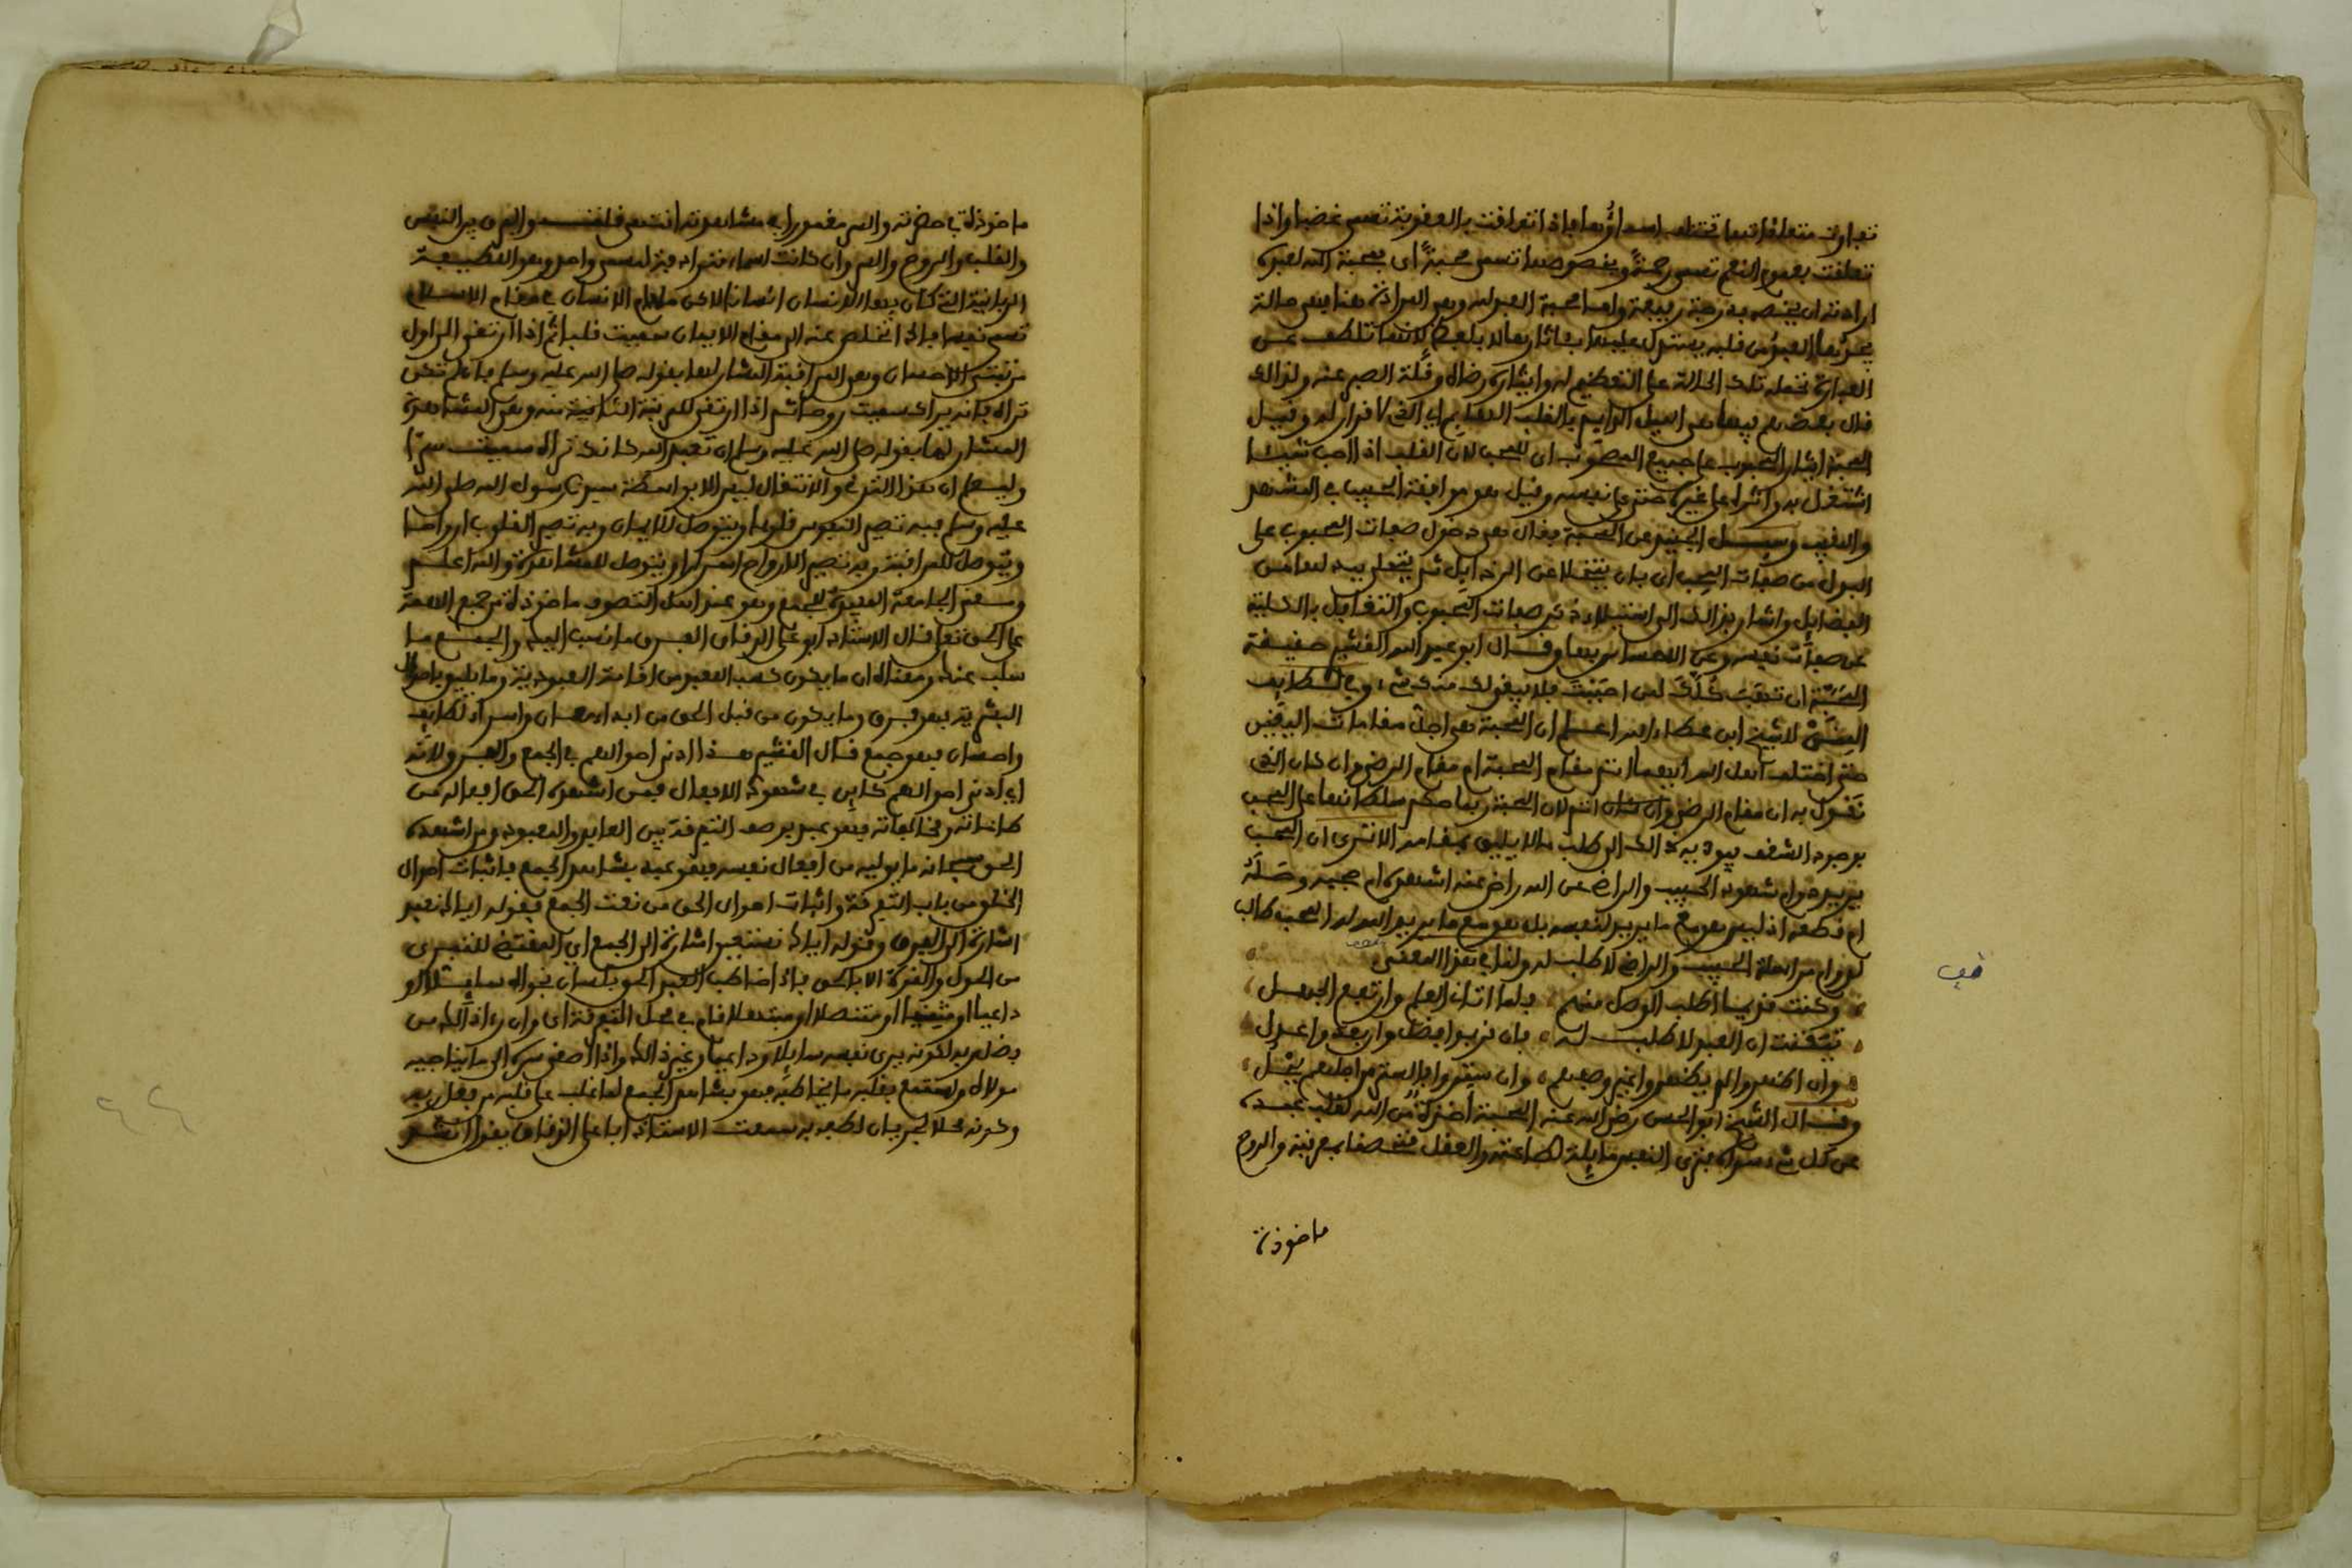 تفاوت متعلقاتها تختلف اسماؤها فاذا تعلقت بالعقوبة تسمى غضبا واذا
تعلقت بعموم النعم تسمى رحمة وبخصوصها تسمى محبة اى محبة الله لعبده
ارادته ان يخصه برتبة رفيعة واما محبة العبد له وهى المرادة هنا فهى حالة
يجدها العبد من قلبه يستدل عليها بآثارها لا بلفظ لانها تلطف عن
العبارة تحمله تلك الحالة على التعظيم له وايثار رضاه وقلة الصبر عنه ولذالك
قال بعضهم فيها هى الميل الدايم بالقلب الهايم اى الذى لا قرار له وقيل
المحبة ايثار المحبوب على جميع المصحوب اى للمحب لان القلب اذا احب شيئا
اشتغل به وآثره على غيره حتى على نفسه وقيل هو موافقة الحبيب في المشهد
والمغيب وسئل الجنيد عن المحبة فقال هو دخول صفات المحبوب على
البدل من صفات المحب اى بان يتخلا عن الرذايل ثم يتحلى بيد لها من
الفضايل واشار بذالك الى استيلاء ذكر صفات المحبوب والتغافل بالكلية
عن صفات نفسه وعن الاحساس بها وقال ابو عبد الله القرشي حقيقة
المحبة ان تهب كلك لمن احببت فلا يبقى لك منك شىء وفي لطايف
المنن لشيخ ابن عطاء الله اعلم ان المحبة هى اجل مقامات اليقين
حتى اختلف اهل الله ايهما اتم مقام المحبة ام مقام الرضى وان كان الذى
نقول به ان مقام الرضى اتم لان المحبة ربما حكم سلطانها على المحب
بوجود الشغف فيؤديه ذالك الى طلب ما لا يليق بمقامه الا ترى ان المحب
يريد دوام شهود الحبيب والراضى عن الله راض عنه اشهده ام حجبه وصله
ام قطعه اذ ليس هو مع ما يريد لنفسه بل هو مع ما يريد الله له المحب طالب
لدوام مراسلة الحبيب والراضى لا طلب له ولنا في هذا المعنى
وكنت قديما اطلب الوصل منهم فلما اتانى العلم وارتفع الجهل
تيقنت ان العبد لا طلب له فان قربوا فضل وان بعدوا عدل
وان اظهروا لم يظهروا غير وصفهم وان ستروا فالستر من اجلهم يحلو
وقال الشيخ ابو الحسن رضى الله عنه المحبة أخذة من الله لقلب عبده
عن كل شىء سواه فترى النفس مايلة لطاعته والعقل متحصنا بمعرفته والروح
ماخوذة
ماخوذة في حضرته والسر مغمورا في مشاهدته انتهى قلت والفرق بين النفس
والقلب والروح والسر وان كانت اسماء مترادفة لمسمى واحد وهو اللطيفة
الربانية التى كان بها الانسان انسانا لاكن مادام الانسان في مقام الاسلام
تسمى نفسا فاذا تخلص عنه الى مقام الايمان سميت قلبا ثم اذا ارتقى الى اول
مرتبتى الاحسان وهى المراقبة المشار لها بقوله صلى الله عليه وسلم فان لم تكن
تراه فانه يراك سميت روحا ثم اذا ارتقى للمرتبة الثانية منه وهى المشاهدة
المشار لها بقوله صلى الله عليه وسلم ان تعبد الله كانك تراه سميت سرا
وليعلم ان هذا الترقى والانتقال ليس الا بواسطة سيدنا رسول الله صلى الله
عليه وسلم فبه تصير النفوس قلوبا ويتوصل للايمان وبه تصير القلوب ارواحا
ويتوصل للمراقبة وبه تصير الارواح اسرارا ويتوصل للمشاهدة والله اعلم
وسعى الجامعة المفيدة للجمع وهو عند اهل التصوف ماخوذة من جمع الهمة
على الحق تعالى قال الاستاذ ابو على الدقاق الفرق ما نسب اليك والجمع ما
سلب عنك ومعناه ان ما يكون كسب العبد من اقامة العبودية وما يليق باحوال
البشرية فهو فرق وما يكون من قبل الحق من ابداء معان واسداء لطايف
واحسان فهو جمع قال القشيرى هذا ادنى احوالهم في الجمع والفرق ولانه
اى ادنى احوالهم كاين في شهود الافعال فمن اشهده الحق افعاله من
طاعاته ومخالفاته فهو عبد بوصف التفرقة بين العابد والمعبود ومن اشهده
الحق سبحانه ما يوليه من افعال نفسه فهو عبد يشاهد الجمع فاثبات احوال
الخلق من باب التفرقة واثبات احوال الحق من نعت الجمع فقوله اياك نعبد
اشارة الى الفرق وقوله اياك نستعين اشارة الى الجمع اى المقتضى للتبرى
من الحول والقوة الا بالحق فاذا خاطب العبد الحق بلسان نجواه سايلا او
داعيا او مثنيا او متنصلا او مبتهلا قام في محل التفرقة اى وان راى ذالك من
فضل ربه لكونه يرى نفسه سايلا وداعيا وغير ذالك واذا اصغى بسره الى ما يناجيه
مولاه واستمع بقلبه ما يخاطبه فهو يشاهد الجمع لما غلب على قلبه من فعل ربه
وكونه محلا لجريان لطفه به سمعت الاستاذ ابا على الدقاق يقول انشد